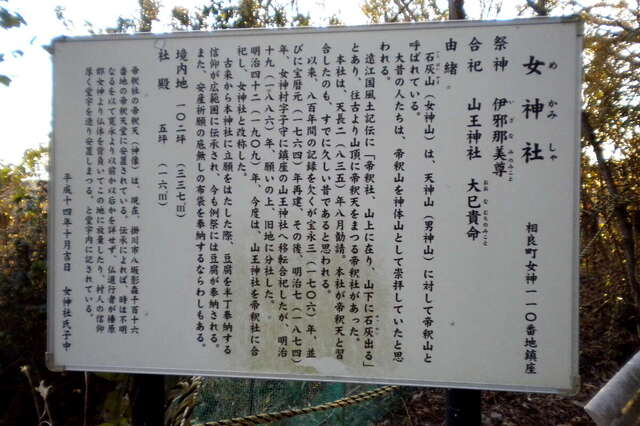 女神社
めかみしゃ
相良町女神一一〇番地鎮座
祭神 伊邪那美尊
いざなみのみこと
合祀 山王神社 大巳貴命
おおなむちのみこと
由緒
石灰山(女神山)は、天神山(男神山)に対して帝釈山と
呼ばれている。
大昔の人たちは、帝釈山を神体山として崇拝していたと思
われる。
遠江国風土記伝に「帝釈社、山上に在り、山下に石灰出る」
とあり、往古より山頂に帝釈天をまつる帝釈社があった。
本社は、天長二(八二五)年八月勧請。本社が帝釈天と習
合したのも、すでに久しい昔であると思われる。
以来、八百年間の記録を欠くが宝永三(一七〇六)年、並
びに宝暦元(一七六四)年再建、その後、明治七(一八七四)
年、女神村字子守に鎮座の山王神社へ移転合祀したが、明治
十九(一八八六)年、願いの上、旧地に分社した。
明治四十二(一九〇九)年、今度は、山王神社を帝釈社に合
祀し、女神社と改称した。
古来から本神社に立願をはたした際、豆腐を半丁奉納する
信仰が広範囲に伝承され、今も例祭には豆腐が奉納される。
また、安産祈願の底無しの布袋を奉納するならわしもある。
境内地 一〇二坪 (三三七㎡)
社殿 五坪 (一六㎡)
帝釈社の帝釈天(神像)は、現在、掛川市八坂影森千百十六
番地の帝釈天堂に安置されている。伝承によれば、時は不明
なるを以て寛永より以前か以後かを詳せず、仏道行者が榛原
郡女神より仏像を背負いてこの地に放置したり、村人の信仰
厚く堂宇を造り安置しまつる。と堂宇内に記されている。
平成十四年十月吉日 女神社氏子中